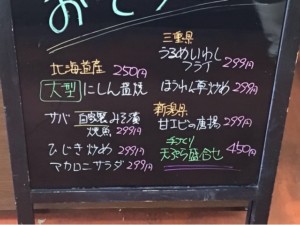 北海道産 250円
大型 にしん塩焼
サバ 自家製 みそ漬
焼魚 299円
ひじき炒め 299円
マカロニサラダ 299円
三重県
うるめいわし
フライ 299円
ほうれん草炒め 399円
新潟県
甘エビの唐揚 299円
手づくり
天ぷら盛合せ 450円